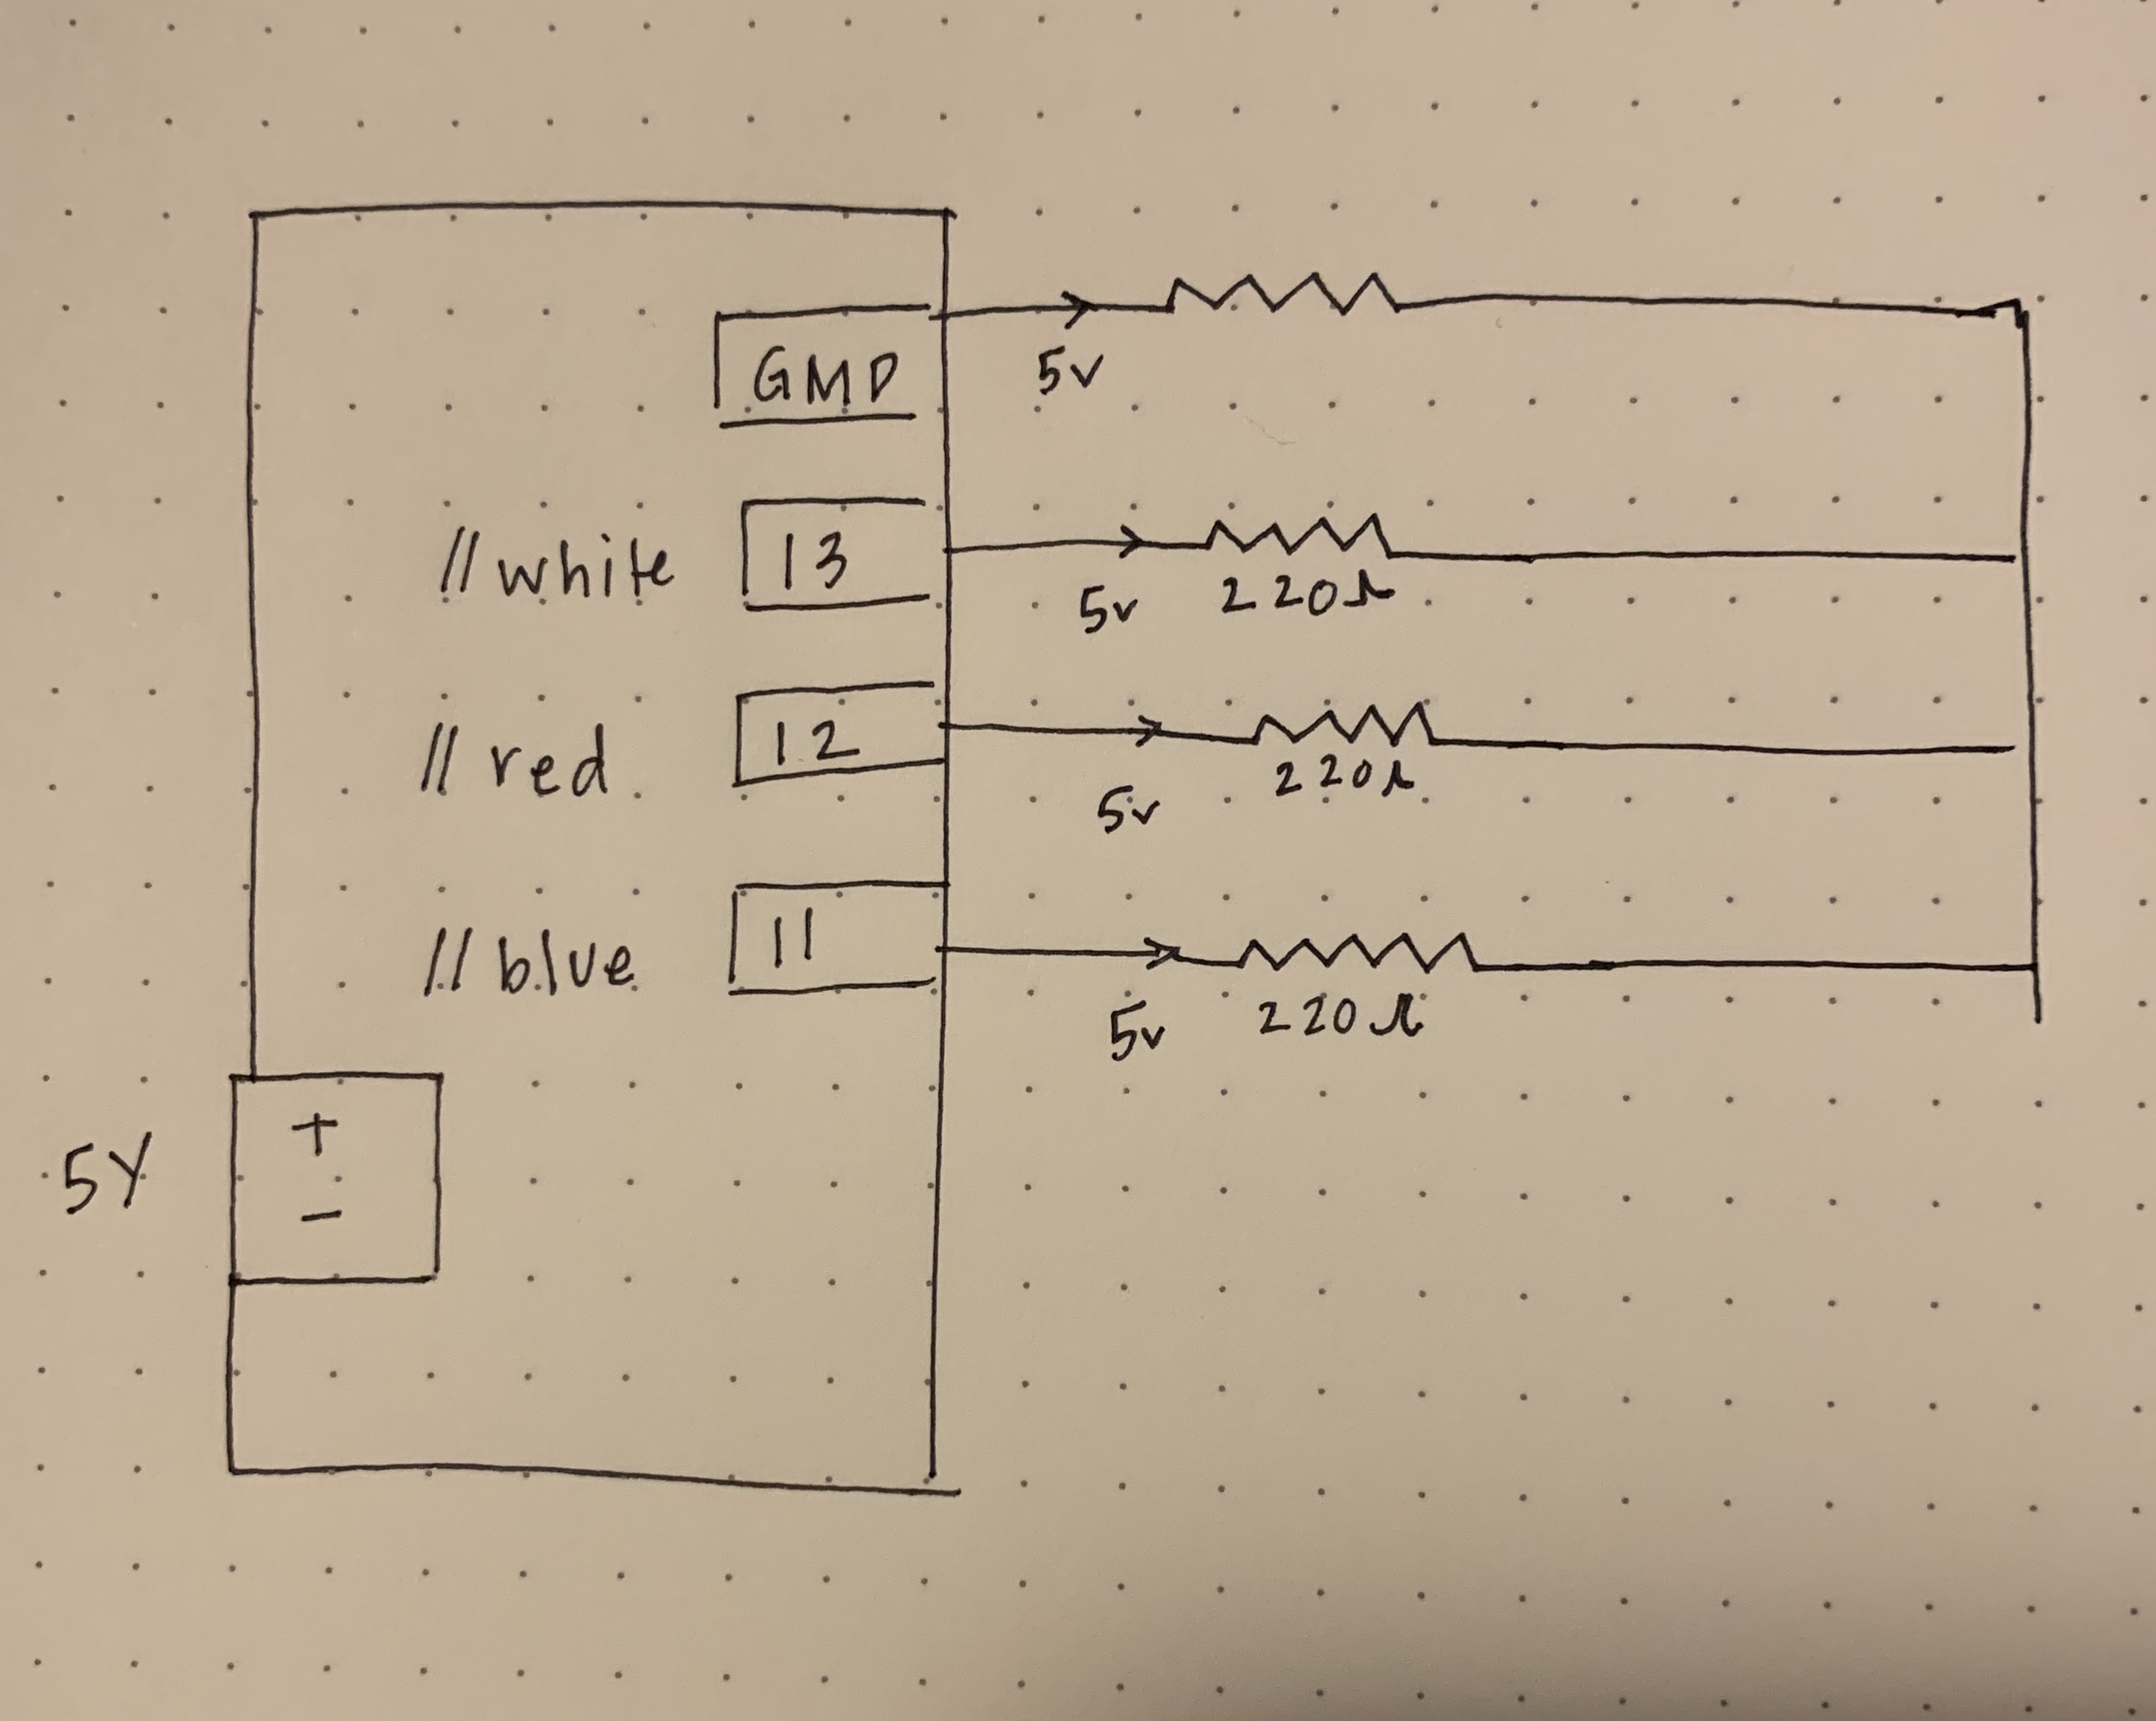 GMD
5v
//white 13
5v 220Ω
//red 12
5v 220Ω
//blue 11
5v 220Ω
+
5V
-